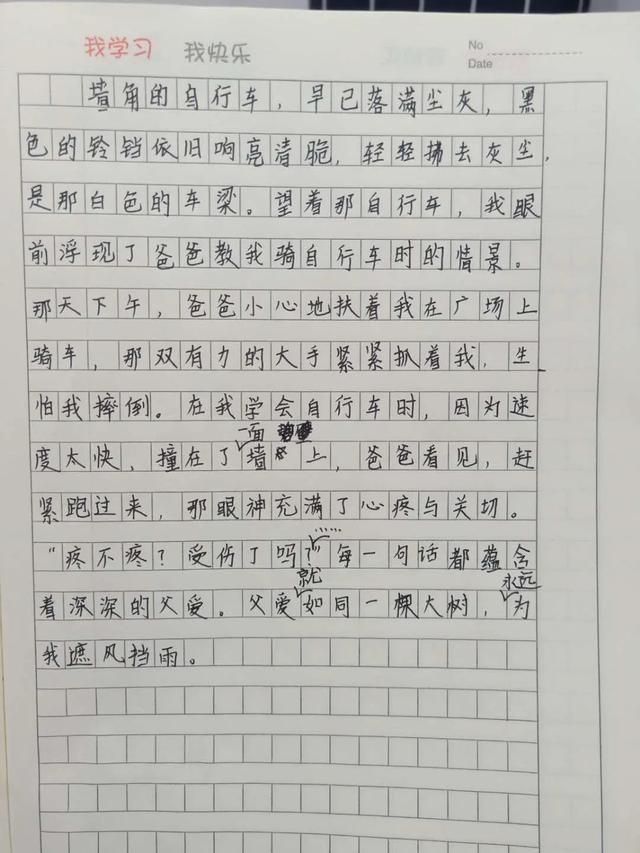 我学习 我快乐
No
Date
墙角的自行车，早已落满尘灰，黑
色的铃铛依旧响亮清脆，轻轻拂去灰尘，
是那白色的车梁。望着那自行车，我眼
前浮现了爸爸教我骑自行车时的情景。
那天下午，爸爸小心地扶着我在广场上
骑车，那双有力的大手紧紧抓着我，生
怕我摔倒。在我学会自行车时，因为速
度太快，撞在了一面墙上，爸爸看见，赶
紧跑过来，那眼神充满了心疼与关切。
“疼不疼？受伤了吗？……”每一句话都蕴含
着深深的父爱。父爱就如同一棵大树，永远为
我遮风挡雨。